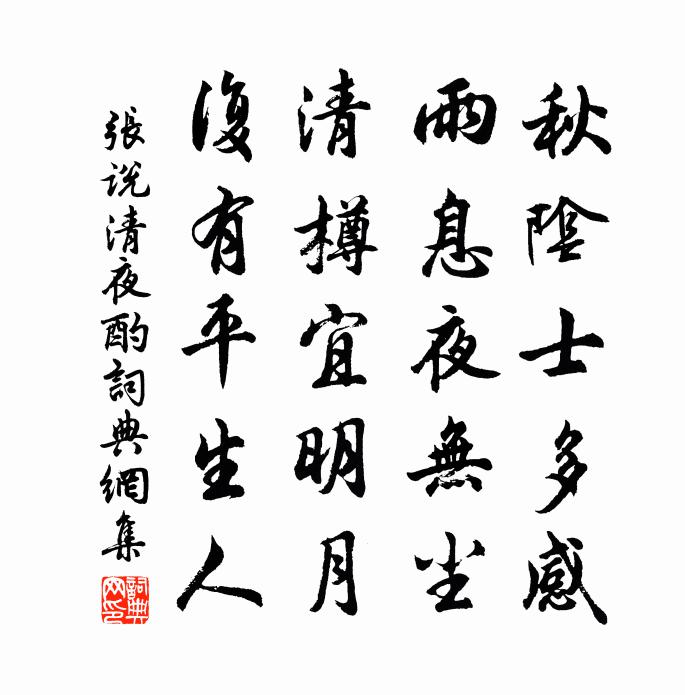 秋陰士多感
雨息夜無尘
清樽宜明月
復有平生人
張说清夜酌詞典網集
詞典网印